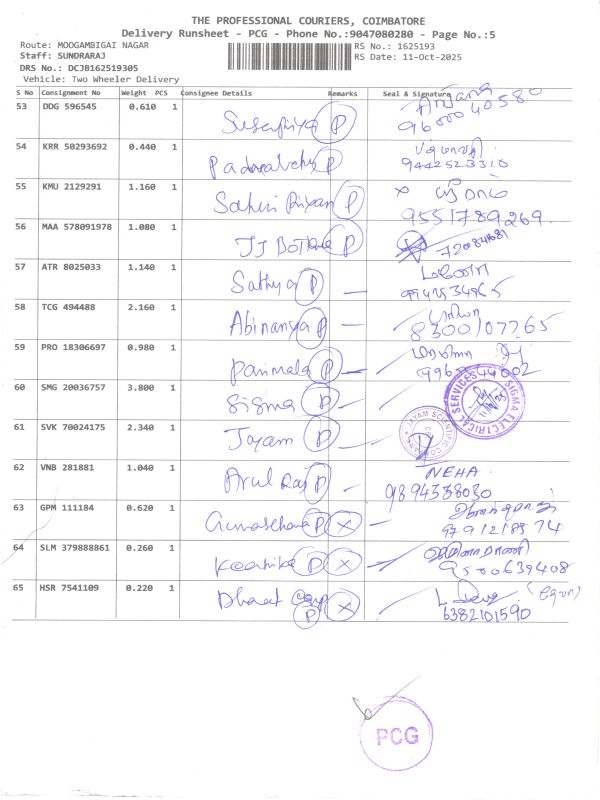 THE PROFESSIONAL COURIERS, COIMBATORE
Delivery Runsheet - PCG - Phone No.:9047080280 - Page No.:5
Route: MOOGAMBIGAI NAGAR
RS No.: 1625193
Staff: SUNDRARAJ
RS Date: 11-Oct-2025
DRS No.: DCJB162519305
Vehicle: Two Wheeler Delivery
S No Consignment No Weight PCS Consignee Details Remarks Seal & Signature
53 DDG 596545 0.610 1 P
54 KRR 50293692 0.440 1 P
9442523310
55 KMU 2129291 1.160 1 P
9551789269
56 MAA 578091978 1.080 1 P
57 ATR 8025033 1.140 1 Sathya P
58 TCG 494488 2.160 1 Abinanya P
8300107765
59 PRO 18306697 0.980 1 Parimala P
60 SMG 20036757 3.800 1 Sigma P
SIGMA ELECTRICAL SERVICES
61 SVK 70024175 2.340 1 Jayam P
JAYAM SCIENTIFIC
62 VNB 281881 1.040 1 Arul Raj P NEHA
9894338030
63 GPM 111184 0.620 1 P X
64 SLM 379888861 0.260 1 Keerthika P X
9500639408
65 HSR 7541109 0.220 1 Bharat P X
6382101590
PCG